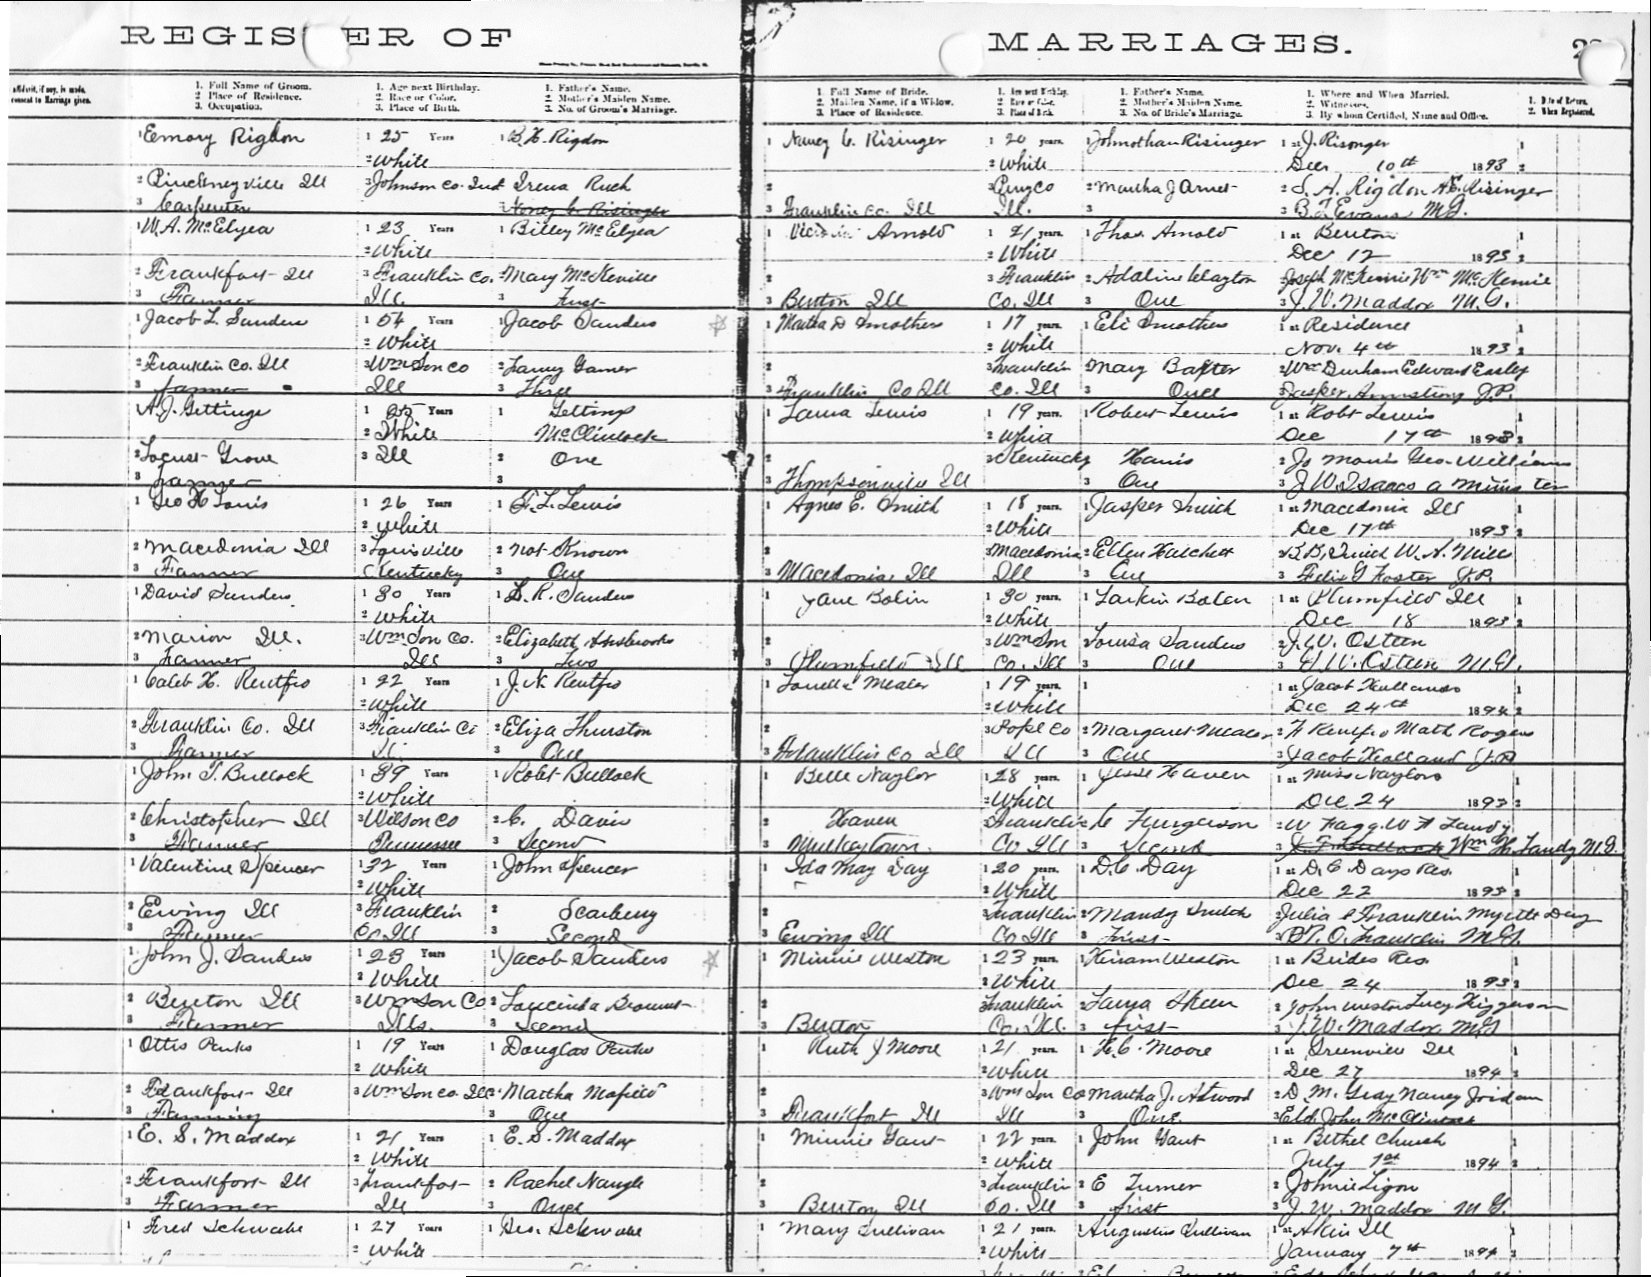 REGISTER OF MARRIAGES.
1. Full Name of Groom. 2. Place of Residence. 3. Occupation.
1. Age next Birthday. 2. Race or Color. 3. Place of Birth.
1. Father's Name. 2. Mother's Maiden Name. 3. No. of Groom's Marriage.
1. Full Name of Bride. 2. Maiden Name, if a Widow. 3. Place of Residence.
1. Age next Birthday. 2. Race or Color. 3. Place of Birth.
1. Father's Name. 2. Mother's Maiden Name. 3. No. of Bride's Marriage.
1. Where and When Married. 2. Witnesses. 3. By whom Certified, Name and Office.
1. Date of Return. 2. When Registered.
1 Emory Rigdon 1 25 Years 1 B. H. Rigdon 1 Nancy C. Risinger 1 20 years. 1 Johnothan Risinger 1 at J. Risinger 1
2 White 2 White Dec 10th 1893 2
2 Pinckneyville Ill 3 Johnson Co. Ind Irena Ruch 2 3 Perry Co 2 Martha J Ames 2 S. A. Rigdon A.E. Risinger
3 Carpenter Nancy C. Risinger 3 Franklin Co. Ill Ill. 3 3 B. F. Evans M.G.
1 W. A. McElyea 1 23 Years 1 Billey McElyea 1 Arnold 1 21 years. 1 Thos. Arnold 1 at Benton 1
2 White 2 White Dec 12 1893 2
2 Frankfort Ill 3 Franklin Co. 2 Mary McKeville 2 3 Franklin 2 Adaline Clayton Joseph McKemie Wm McKemie
3 Farmer Ill. 3 First 3 Benton Ill Co. Ill 3 One 3 J. W. Maddox M.G.
1 Jacob L. Sanders 1 54 Years 1 Jacob Sanders 1 Martha D Smothers 1 17 years. 1 Eli Smothers 1 at Residence 1
2 White 2 White Nov. 4th 1893 2
2 Franklin Co. Ill 3 Wmson Co 2 Fanny Garner 2 3 Franklin Mary Baxter 2 Wm Durham Edward Easley
3 Farmer Ill 3 Three 3 Franklin Co Ill Co. Ill 3 Once 3 Jasper Armstrong J.P.
1 A. J. Gettings 1 25 Years 1 Gettings 1 Laura Lewis 1 19 years. 1 Robert Lewis 1 at Robt Lewis 1
2 White McClintock 2 White Dec 17th 1893 2
2 Locust Grove 3 Ill 2 One 2 3 Kentucky Harris 2 Jo Morris Geo. Williams
3 Farmer 3 3 Thompsonville Ill 3 One 3 J. W. Isaacs a Minister
1 Geo H Lewis 1 26 Years 1 F. L. Lewis 1 Agnes E. Smith 1 18 years. 1 Jasper Smith 1 at Macedonia Ill 1
2 White 2 White Dec 17th 1893 2
2 Macedonia Ill 3 Louisville 2 Not Known 2 3 Macedonia 2 Ellen Hatchett 2 B.B. Smith W. A. Mills
3 Farmer Kentucky 3 One 3 Macedonia Ill Ill 3 One 3 Felix G Foster J.P.
1 David Sanders 1 30 Years 1 S. R. Sanders 1 Jane Bolin 1 30 years. 1 Larkin Bolen 1 at Plumfield Ill 1
2 White 2 White Dec 18 1893 2
2 Marion Ill. 3 Wmson Co. 2 Elizabeth Ashbrooks 2 3 Wmson Louisa Sanders 2 J. W. Osteen
3 Farmer Ill 3 Two 3 Plumfield Ill Co. Ill 3 One 3 H. W. Osteen M.G.
1 Caleb H. Rentfro 1 22 Years 1 J. N. Rentfro 1 Louella Mealer 1 19 years. 1 1 at Jacob Hollands 1
2 White 2 White Dec 24th 1894 2
2 Franklin Co. Ill 3 Franklin Co 2 Eliza Thurston 2 3 Pope Co 2 Margaret Mealer 2 H Rentfro Math Rogers
3 Farmer Ill 3 One 3 Franklin Co Ill Ill 3 One 3 Jacob Holland J.P.
1 John T. Bullock 1 39 Years 1 Robt Bullock 1 Belle Naylor 1 28 years. 1 Jesse Haven 1 at Miss Naylors 1
2 White 2 White Dec 24 1893 2
2 Christopher Ill 3 Wilson Co 2 C. Davis 2 Haven 3 Franklin 2 C Furgerson 2 W Fagg. W F Landy
3 Farmer Tennessee 3 Second 3 Mulkeytown. Co Ill 3 Second 3 Wm H. Landy M.G.
1 Valentine Spencer 1 32 Years 1 John Spencer 1 Ida May Day 1 20 years. 1 D.C. Day 1 at D. C. Days Res. 1
2 White 2 White Dec 22 1893 2
2 Ewing Ill 3 Franklin 2 Scarberry 2 3 Franklin 2 Mandy 2 Julia C Franklin Myrtle Day
3 Farmer Co Ill 3 Second 3 Ewing Ill Co Ill 3 First 3 T. O. Franklin M.G.
1 John J. Sanders 1 28 Years 1 Jacob Sanders 1 Minnie Weston 1 23 years. 1 Hiram Weston 1 at Brides Res. 1
2 White 2 White Dec 24 1893 2
2 Benton Ill 3 Wmson Co 2 Laucinda 2 Franklin 2 2 John Weston Lucy Higgerson
3 Farmer Ills. 3 Second 3 Benton Co. Ill. 3 first 3 J. W. Maddox M.G
1 Ottis Parks 1 19 Years 1 Douglas Parks 1 Ruth J Moore 1 21 years. 1 H. C. Moore 1 at Greenview Ill 1
2 White 2 White Dec 27 1894 2
2 Frankfort Ill 3 Wmson Co. Ill 2 Martha Mofield 2 3 Wmson Co Martha J. Atwood 2 D. M. Gray Nancy Jordan
3 Farming 3 One 3 Frankfort Ill Ill 3 One 3 Eld. John McClintock
1 E. S. Maddox 1 21 Years 1 E. S. Maddox 1 Minnie Gant 1 22 years. 1 John Gant 1 at Bethel Church 1
2 White 2 White July 1st 1894 2
2 Frankfort Ill 3 Frankfort 2 Rachel Naugle 2 3 Franklin 2 E Turner 2 Johnie Ligon
3 Farmer Ill 3 Once 3 Benton Ill Co. Ill 3 first 3 J. W. Maddox M G.
1 Fred Schwabe 1 27 Years 1 Geo. Schwabe 1 Mary Sullivan 1 21 years. 1 Augustus Sullivan 1 at Akin Ill 1
2 White 2 White January 7th 1894 2